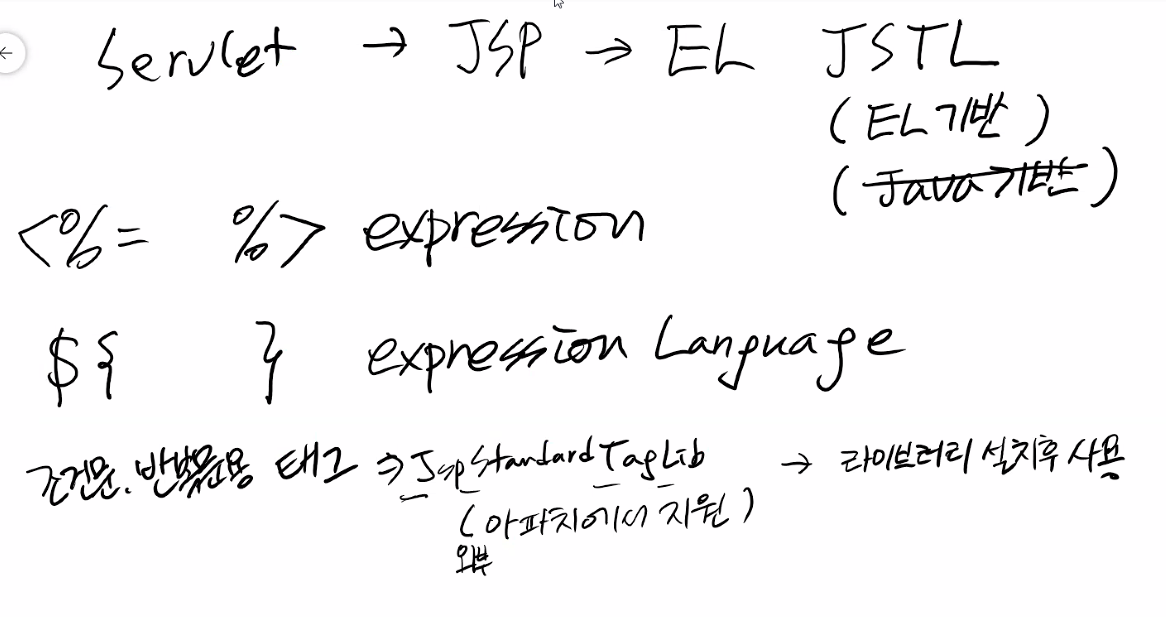 Servlet → JSP → EL JSTL
(EL기반)
(Java기반)
<%= %> expression
${ } expression Language
조건문, 반복문용 태그 ⇒ Jsp Standard Tag Lib → 라이브러리 설치후 사용
(아파치에서 지원)
외부